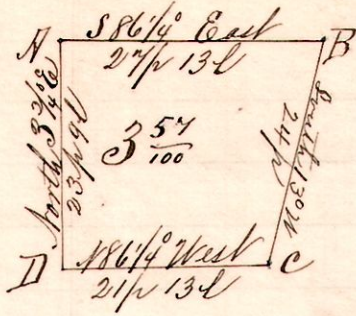 A S 86 1/4° East B
27p 13l
North 3 3/4° E
23p 9l
3 57/100
South 13° W
24p
D N 86 1/4° West C
21p 13l